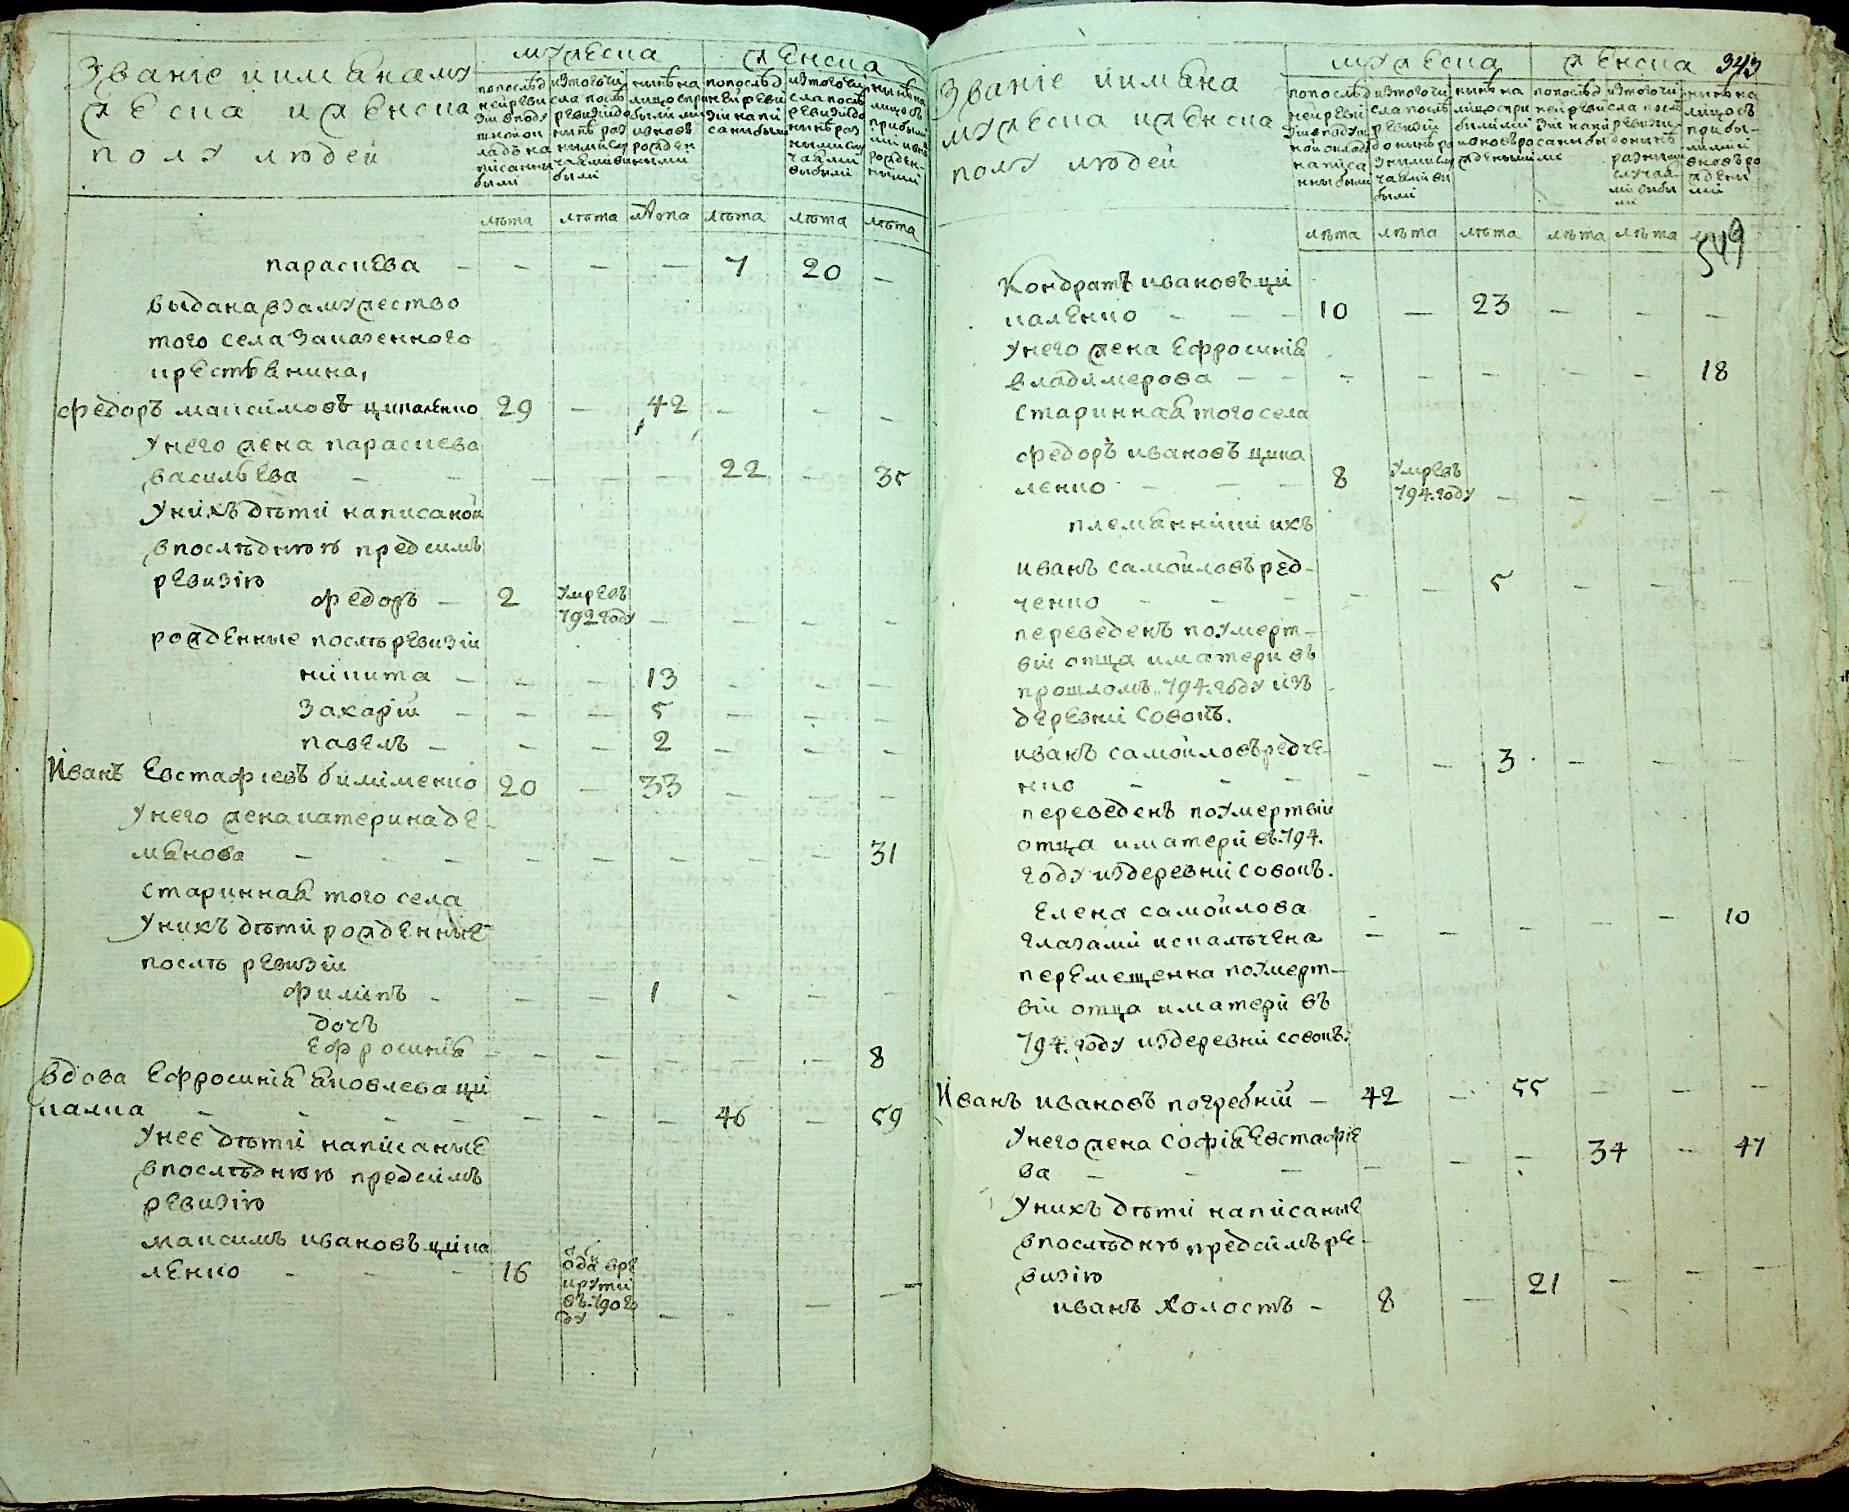 Званіе иимѧнамꙋ
жеска иженска
полꙋ людей
мꙋжеска
женска
попослѣд
ней реви
зіи вподꙋ
шной ок
ладъ на
писанни
были
изтого чи
сла послѣ
ревизіи до
нынѣ раз
ными слꙋ
чаями вы
были
нынѣ на
лицо спри
былыми
ивновь
рожден
ными
попослѣд
ней реви
зіи напи
саны были
изтого чи
сла послѣ
ревизіи до
нынѣ раз
ными слꙋ
чаями
выбыли
нынѣ на
лицо съ
прибыл
ми ивно
рожден
ными
лѣта лѣта лѣта лѣта лѣта лѣта
параскева — — — — 7 20 —
выдана взамꙋжество
того села заказенного
крестьѧнина,
федоръ максимовъ цикаленко 29 — 42 — — —
ꙋнего жена параскева
васильева — — — — — 22 — 35
ꙋнихъ дѣти написаной
впослѣднюю предсимъ
ревизію
федоръ — 2 ꙋмревъ
792 годꙋ — — — —
рожденные послѣ ревизіи
никита — — — 13 — — —
захарій — — — 5 — — —
павелъ — — — 2 — — —
Иванъ Евстафіевъ билименко 20 — 33 — — —
ꙋнего жена катерина де
мѧнова — — — — — — — — 31
стариннаѧ того села
ꙋнихъ дѣти рожденные
послѣ ревизіи
филипъ — — — 1 — — —
дочь
ефросинія — — — — — — 8
вдова Ефросинія ѧковлева ци
калка — — — — — — — 46 — 59
ꙋнее дѣти написаные
впослѣднюю предсимъ
ревизію
максимъ ивановъ цика
ленко — — — 16
в рек
рꙋти
въ 790 го
дꙋ — — — —
Званіе иимѧна
мꙋжеска иженска
полꙋ людей
мꙋжеска
женска 343
попослѣд
ней реви
зіи вподꙋш
ной окладъ
написа
нны были
изтого чи
сла послѣ
ревизіи
до нынѣ ра
зными слꙋ
чаями вы
были
нынѣ на
лицо спри
былыми
ивновь ро
жденными
попослѣд
ней реви
зіи напи
саны бы
ли
изтого чи
сла послѣ
ревизіи
до нынѣ
разными
слꙋчаѧ
ми выбы
ли
нынѣ на
лицо съ
прибы
лыми
вновь ро
жденны
ми
лѣта лѣта лѣта лѣта лѣта
549
Кондратъ ивановъ ци
каленко — — — 10 — 23 — — —
ꙋнего жена Ефросинія
владимерова — — — — — — — 18
стариннаѧ того села
федоръ ивановъ цика
ленко — — — 8 ꙋмревъ
794. годꙋ — — — —
племѧнники ихъ
иванъ самойловъ ред-
ченко — — — — — 5 — — —
переведенъ поꙋмерт-
віи отца иматери въ
прошломъ 794. годꙋ изъ
деревни совокъ.
иванъ самойловъ редче-
нко — — — — — 3 — — —
переведенъ поꙋмертвіи
отца иматери въ 794.
годꙋ издеревни совокъ.
Елена самойлова — — — — — 10
глазами искалѣчена — — —
перемещенна поꙋмерт-
віи отца иматери въ
794. годꙋ издеревни совокъ.
Иванъ ивановъ погребній — 42 — 55 — — —
ꙋнего жена софія Евстафіе
ва — — — — — 34 — 47
ꙋнихъ дѣти написаные
впослѣднюю предсимъ ре-
визію
иванъ холостъ — 8 — 21 — — —